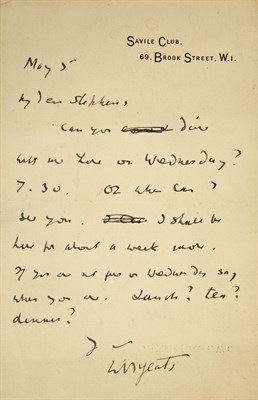 SAVILE CLUB,
69, BROOK STREET, W.1.
May 5
My dear Stephens,
Can you dine
with me here on Wednesday?
7.30. Or when can I
see you. I shall be
here for about a week more.
If you are not free on Wednesday say
when you are. Lunch? tea?
dinner?
Yrs
WBYeats